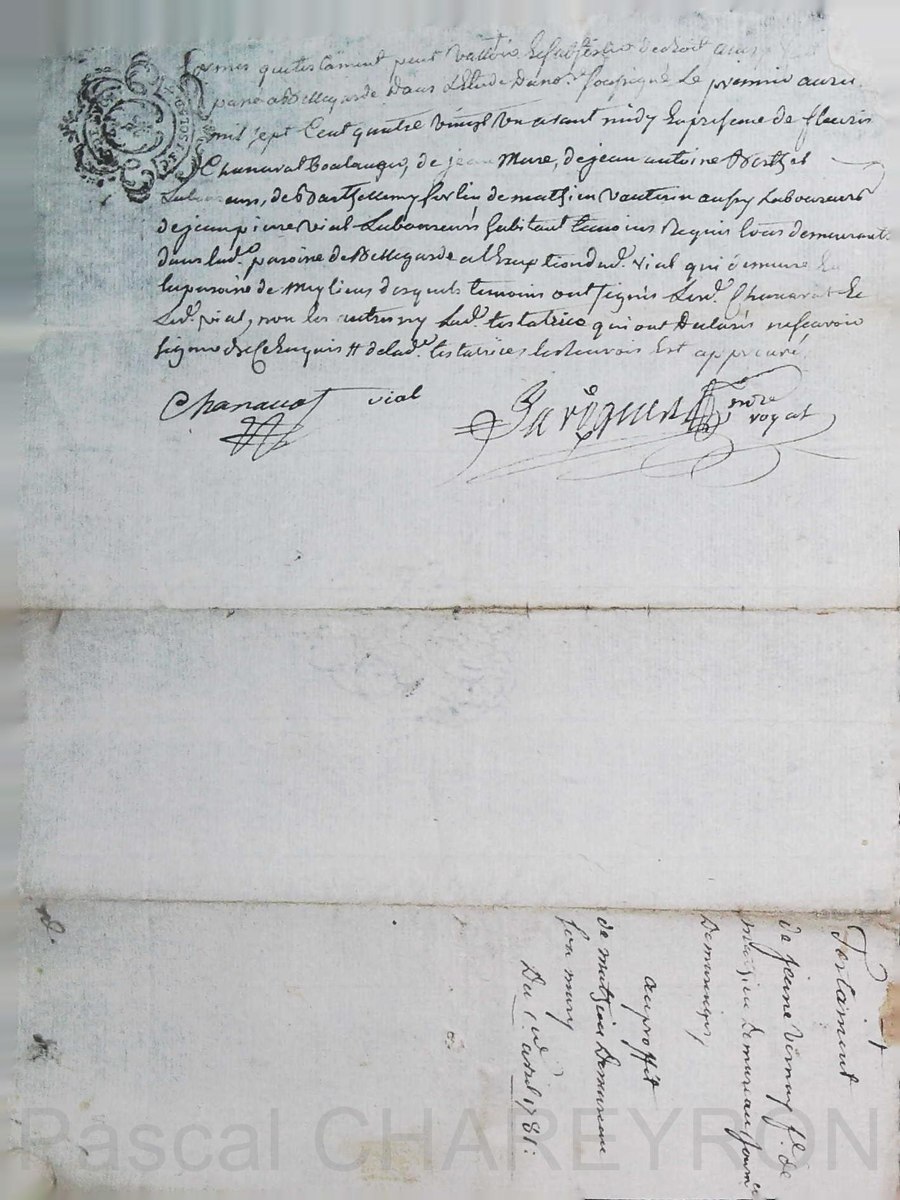 mes que testament peut valloir de droit
passé a Bellegarde Dans L'Etude Du no.re soussigné Le premier avril
mil sept Cent quatre vingt un avant midy En presence de fleuris
Chanavat Boulanger, de jean Mure, de jean antoine
de Barthellemy ferlin de mathieu aussy Laboureurs
de jean pierre vial Laboureurs habitant temoins Requis tous demeurants
dans lad.e paroisse de Bellegarde a l'Exception dud. vial qui demeure En
la paroisse de Miglieu desquels temoins ont signés Led. Chanavat Et
Led. vial, non les autres ny Lad.e testatrice qui ont declarés ne scavoir
signer de ce Enquis de lad.e testatrice Est approuvé
Chanavat vial
no.re
royal
Testament
de jeanne virnay f.e de
mathieu Demurean journ.er

au proffit
de mathieu Demurean
son mary
Du 1.er avril 1781.
Pascal CHAREYRON